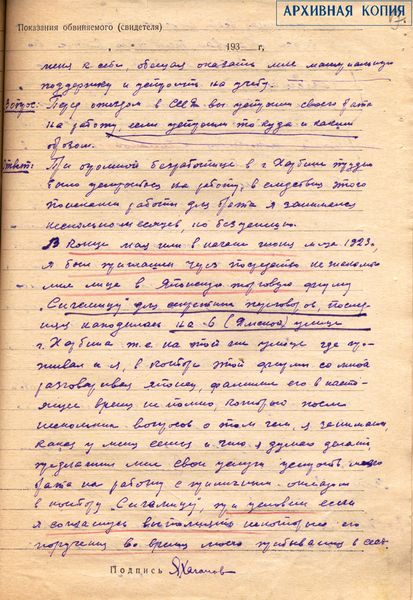 АРХИВНАЯ КОПИЯ
Показания обвиняемого (свидетеля)
193 г.
меня к себе обещая оказать мне материальную
поддержку и устроить на учебу.
Вопрос: Перед отъездом в СССР вы устроили своего брата
на работу, если устроили то куда и каким
образом.
Ответ: При огромной безработице в г. Харбине трудно
было устроиться на работу, в следствии этого
поисками работы для брата я занимался
несколько месяцев, но безуспешно.
В конце мая или в начале июня м-ца 1923 г.
я был приглашен через посредство не знакомого
мне лица в Японскую торговую фирму
"Сигамицу" для переговоров, после-
дняя находилась на 6 (Ямской) улице
г. Харбина т.е. на этой же улице где про-
живал и я, в конторе этой фирмы со мной
разговаривал японец, фамилии его в насто-
ящее время не помню, который после
нескольких вопросов о том чем я занимаюсь,
какая у меня семья и что я думаю делать
предложил мне свои услуги устроить моего
брата на работу с приличным окладом
в контору "Сигамицу", при условии если
я соглашусь выполнять некоторые его
поручения во время моего пребывания в СССР.
Подпись